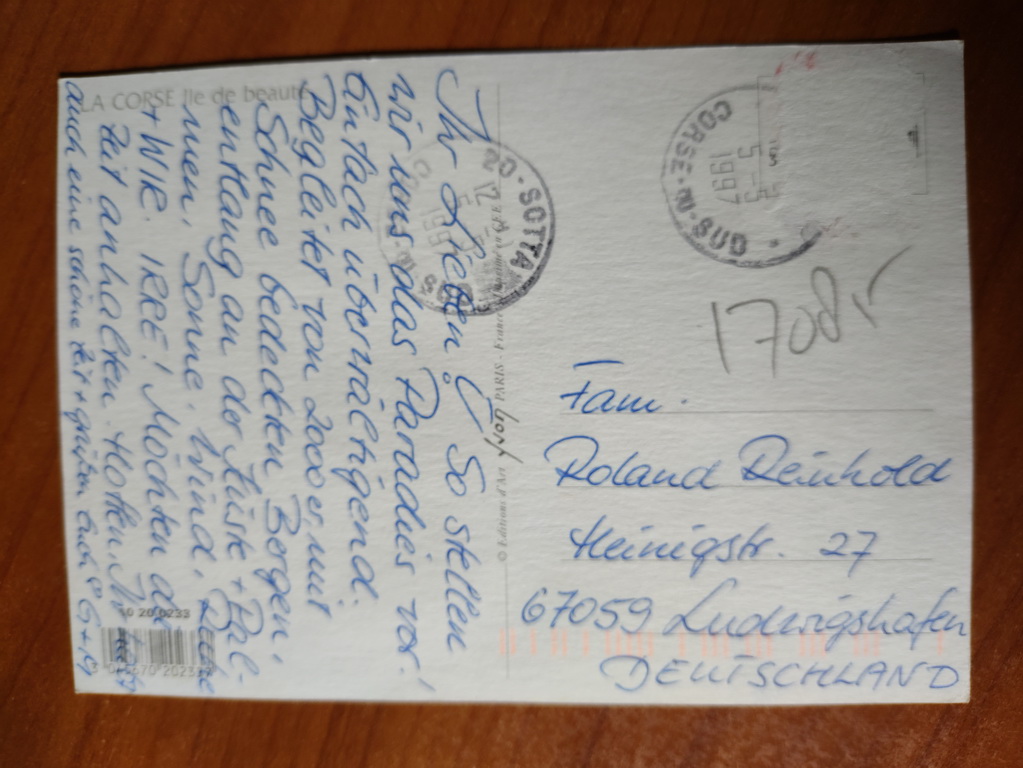 LA CORSE Ile de beauté
Ihr Lieben! So stellen
wir uns das Paradies vor!
Einfach überwältigend.
Begleitet von 2000er mit
Schnee bedeckten Bergen,
entlang an der Küste + Pal-
men, Sonne, Wind,
+ WIR. IRRE! Möchten die
Zeit anhalten. Hoffen,
auch eine schöne Zeit + grüßen Euch G+H
10 20 0233
© Editions d'Art Yvon PARIS - France
SOTTA
2A
5-5
1997
CORSE
5-5
1997
1708
Fam.
Roland Reinhold
Heinigstr. 27
67059 Ludwigshafen
DEUTSCHLAND